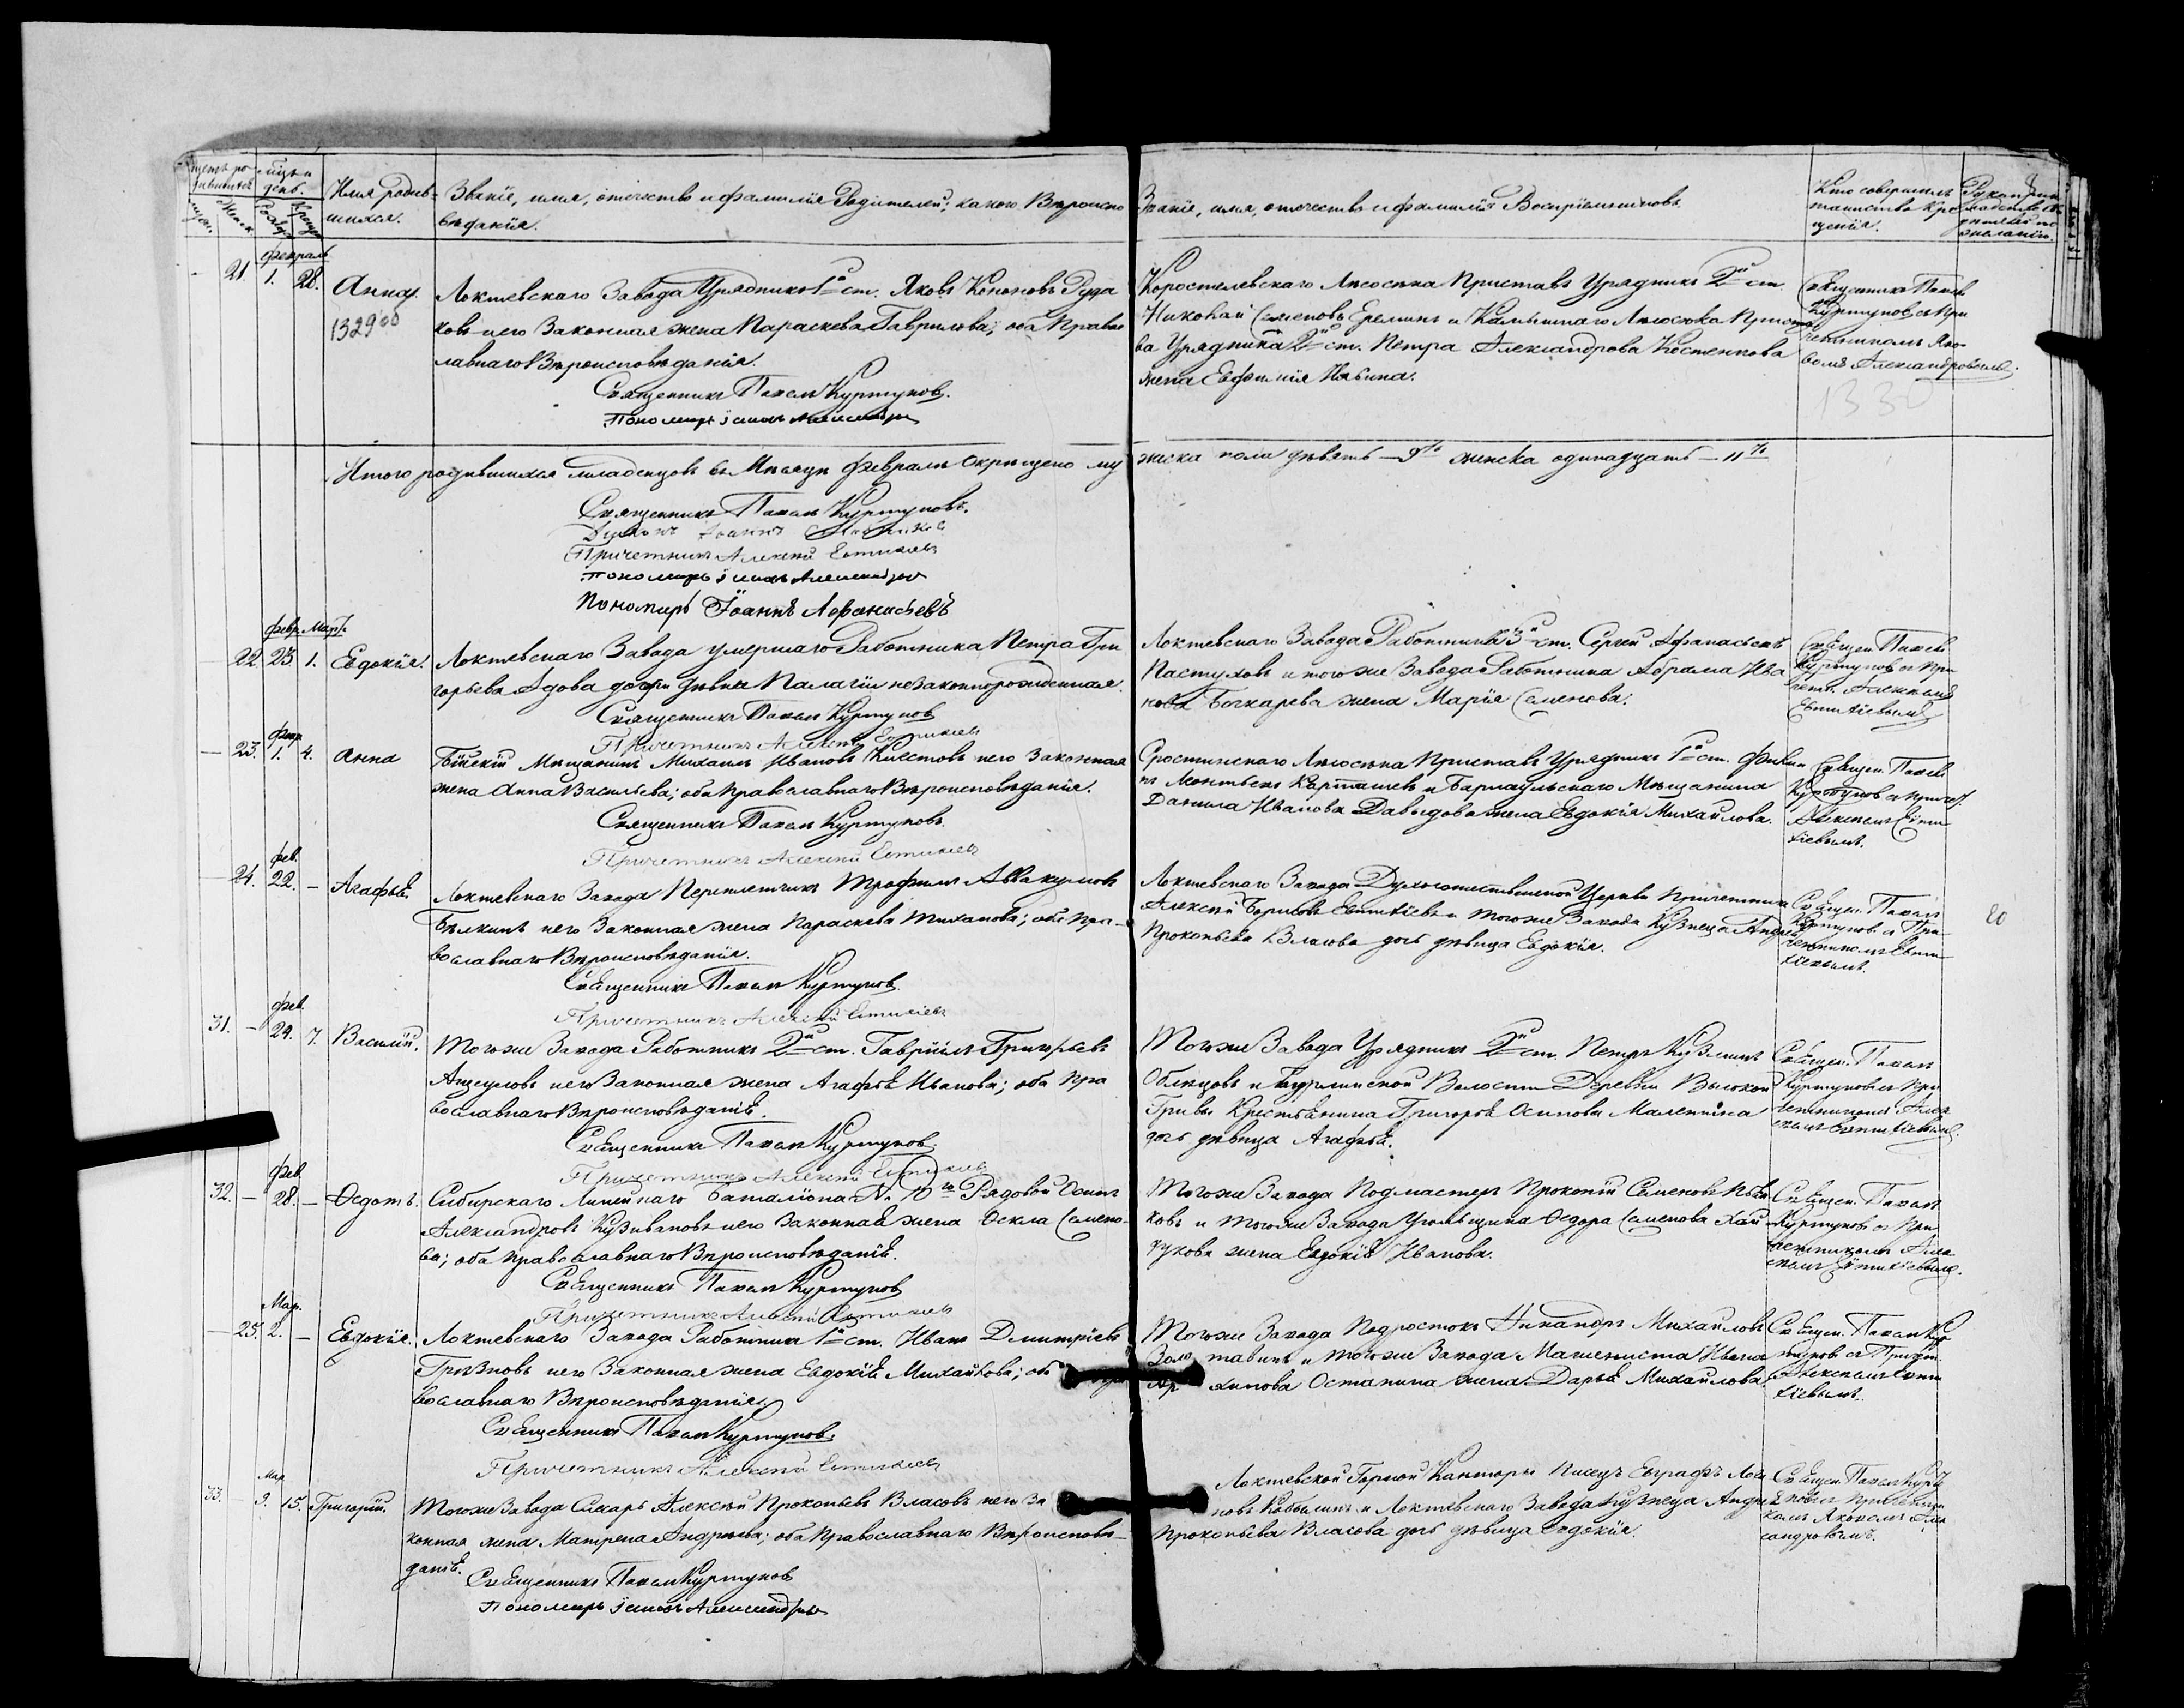 Счетъ ро-
дившихся
Мѣсяцъ и
день.
Муж.
Женск
Рожд.
Крещ.
Имя родив-
шихся.
Званіе, имя, отечество и фамилія Родителей, и какого Вѣроиспо
вѣданія.
Званіе, имя, отечество и фамилія Воспріемниковъ
Кто совершалъ
таинство Кре
щенія.
Февраль
21. 1. 28. Анна.
132900
Локтевскаго Завода Урядникъ 1й ст. Яковъ Кононовъ Руда
ковъ и его Законная жена Параскева Гаврилова; оба Право
славнаго Вѣроисповѣданія.
Священникъ Павелъ Куртуковъ.
Пономарь Яковъ Александров
Коростелевскаго Лѣсосѣка Приставъ Урядникъ 2й ст.
Николай Семеновъ Ереминъ и Камышнаго Лѣсосѣка Приста
ва Урядника 2й ст. Петра Александрова Костенкова
жена Евфимія Ильина.
Священникъ Павелъ
Куртуковъ съ При
четникомъ Яко-
вомъ Александровымъ.
1330
Итого родившихся младенцовъ въ Мѣсяцѣ Февралѣ Окрещено му
жеска пола девять – 9ть женска одинадцать – 11ть
Священникъ Павелъ Куртуковъ.
Дьяконъ Іоаннъ
Причетникъ Алексѣй Евтихіевъ
Пономарь Яковъ Александров
Пономарь Іоаннъ Афанасьевъ
Февр. Март.
22 23. 1. Евдокія.
Локтевскаго Завода умершаго Работника Петра Гри
горьева Адова дочери дѣвки Палагіи незаконнорожденная.
Священникъ Павелъ Куртуков
Причетникъ Алексѣй Евтихіевъ
Локтевскаго Завода Работникъ 3й ст. Сергей Афанасьевъ
Пастуховъ и тогоже Завода Работника Абрама Ива
нова Бочкарева жена Марія Семенова.
Священ. Павелъ
Куртуковъ съ При
четн. Алексѣемъ
Евтихіевымъ
Февр
23. 1. 4. Анна
Бійскій Мѣщанинъ Михаилъ Ивановъ и его Законная
жена Анна Васильева; оба Православнаго Вѣроисповѣданія.
Священникъ Павелъ Куртуковъ.
Причетникъ Алексѣй Евтихіевъ
Сростинскаго Лѣсосѣка Приставъ Урядникъ 1й ст. Филип
пъ Леонтьевъ Карташевъ и Барнаульскаго Мѣщанина
Данила Иванова Давыдова жена Евдокія Михайлова.
Священ. Павелъ
Куртуковъ съ Причет.
Алексѣемъ Евти
хіевымъ.
Фев.
24. 22. – Агафья.
Локтевскаго Завода Переплетчикъ Трофимъ Аввакумовъ
Бѣлкинъ и его Законная жена Параскева Тиханова; оба Пра-
вославнаго Вѣроисповѣданія.
Священникъ Павелъ Куртуков
Причетникъ Алексѣй Евтихіевъ
Локтевскаго Завода Духосошественской Церкви Причетникъ
Алексѣй Борисовъ Евтихіевъ и тогоже Завода Кузнеца Андрея
Прокопьева Власова дочь дѣвица Евдокія.
Священ. Павелъ
Куртуковъ съ При-
четникомъ Евти
хіевымъ.
20
Фев.
31. – 24. 7. Василій.
Тогоже Завода Работникъ 2й ст. Гавріилъ Григорьевъ
и его Законная жена Агафья Иванова; оба Пра
вославнаго Вѣроисповѣданія.
Священникъ Павелъ Куртуков.
Причетникъ Алексѣй Евтихіевъ
Тогоже Завода Урядникъ 2й ст. Петръ Кузминъ
и Бурлинской Волости Деревни Высокой
Гривы Крестьянина Григорья Осипова Маленкина
дочь дѣвица Агафья.
Священ. Павелъ
Куртуковъ съ При
четникомъ Алек
сѣемъ Евтихіевымъ.
Фев
32. – 28. – Ѳедотъ.
Сибирскаго Линейнаго Баталіона № 10го Рядовой Осипъ
Александровъ Кузивановъ и его Законная жена Ѳекла Семено-
ва; оба Православнаго Вѣроисповѣданія.
Священникъ Павелъ Куртуков
Причетникъ Алексѣй Евтихіевъ
Тогоже Завода Подмастеръ Прокопій Семеновъ Пѣв
ковъ и тогоже Завода Угольщика Ѳедора Семенова
жена Евдокія Иванова.
Священ. Павелъ
Куртуковъ съ При
четникомъ Алек
сѣемъ Евтихіевымъ.
Мар.
– 25. 2. – Евдокія.
Локтевскаго Завода Работникъ 1й ст. Иванъ Дмитріевъ
Грязновъ и его Законная жена Евдокія Михайлова; оба
вославнаго Вѣроисповѣданія.
Священникъ Павелъ Куртуков.
Причетникъ Алексѣй Евтихіевъ
Тогоже Завода Подростокъ Никандръ Михайловъ
Золотавинъ и тогоже Завода Машиниста Ивана
Архипова Останина жена Дарья Михайлова.
Священ. Павелъ Кур
туковъ съ Причет.
Алексѣемъ Евти
хіевымъ.
Мар
33. – 9. 15. Григорій.
Тогоже Завода Слесарь Алексѣй Прокопьевъ Власовъ и его За
конная жена Матрена Андреева; оба Православнаго Вѣроисповѣ-
данія.
Священникъ Павелъ Куртуков
Пономарь Яковъ Александров
Локтевской Горной Канторы Писецъ Евграфъ
и Локтевскаго Завода Кузнеца Андрея
Прокопьева Власова дочь дѣвица Евдокія.
Священ. Павелъ Курту
ковъ съ Причетни
комъ Яковомъ Алек
сандровымъ.